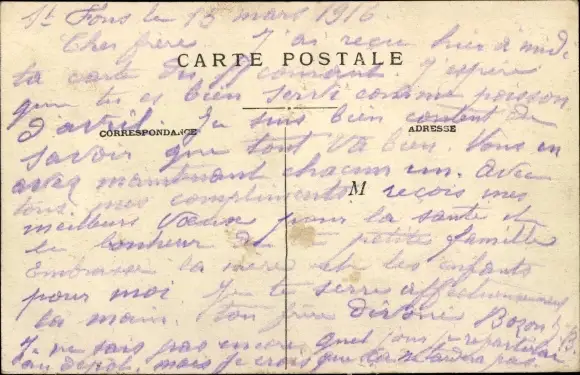 St Fons le 15 mars 1916
Cher frère J'ai reçu hier à midi
CARTE POSTALE
ta carte du courant. J'espère
que tu es bien servi comme poisson
d'avril. Je suis bien content de
CORRESPONDANCE
ADRESSE
savoir que tout va bien. Vous en
avez maintenant chacun un. avec
tous mes compliments reçois mes
M
meilleurs vœux pour la santé et
le bonheur de ta petite famille
Embrasse la mère et les enfants
pour moi Je te serre affectueusement
la main. ton frère dévoué Bozon
Je ne sais pas encore quel jour je repartirai
au dépôt, mais je crois que ça ne tardera pas.